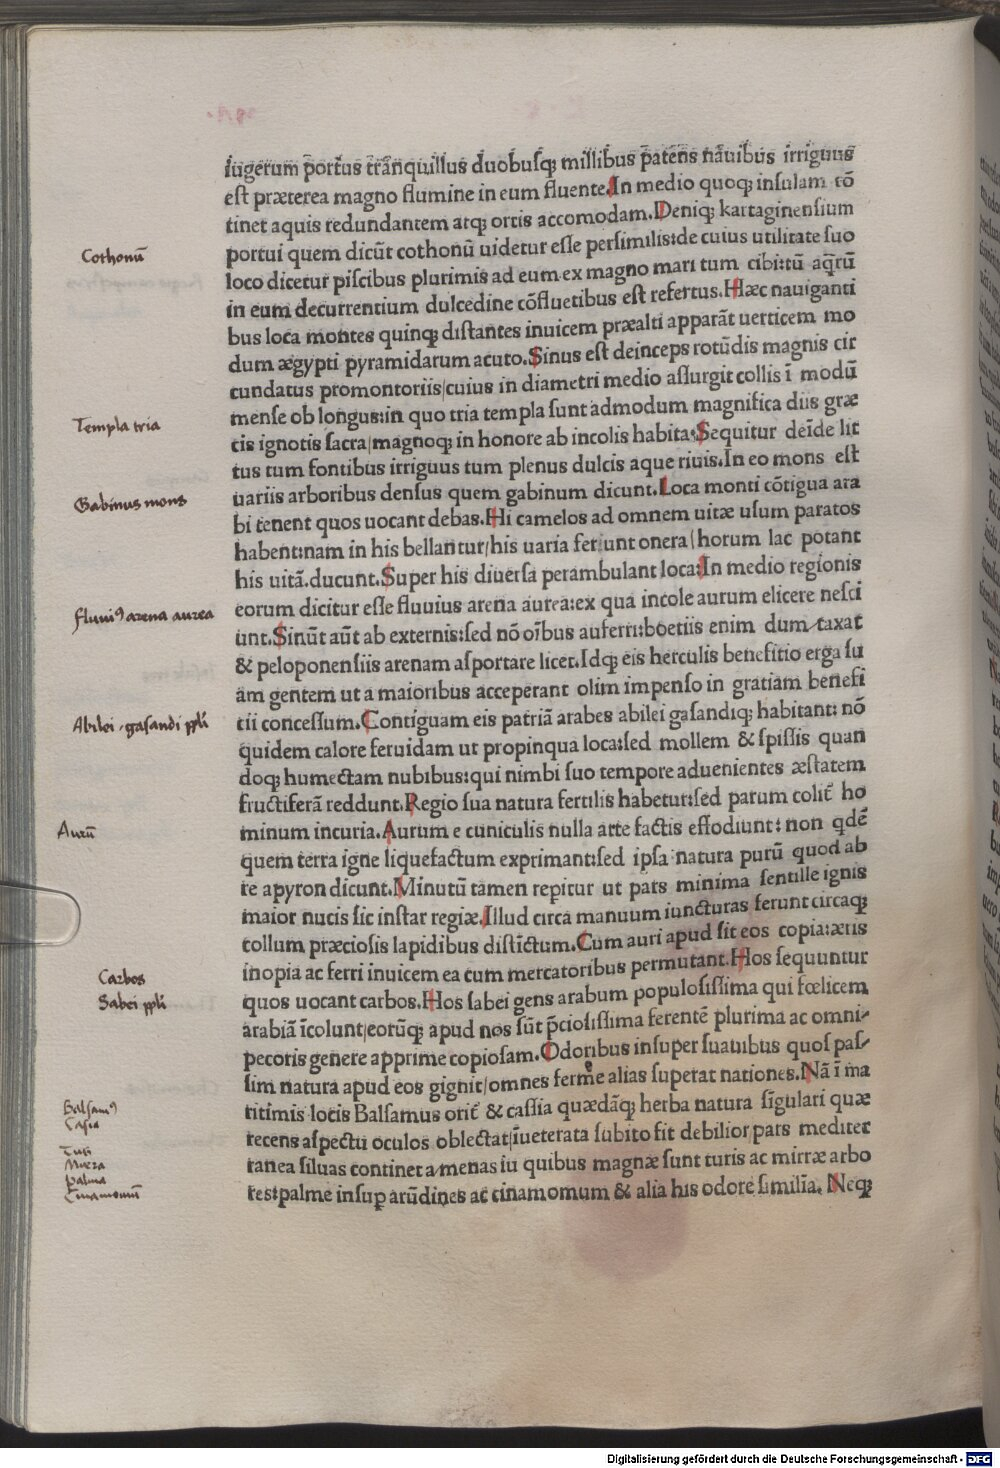 iugerum portus tranquillus duobusq; millibus patens nauibus irriguus
est præterea magno flumine in eum fluente. In medio quoq; insulam cō
tinet aquis redundantem atq; ortis accomodam. Deniq; kartaginensium
Cothonū
portui quem dicūt cothonū uidetur esse persimilis: de cuius utilitate suo
loco dicetur piscibus plurimis ad eum ex magno mari tum cibitū aq̄rū
in eum decurrentium dulcedine cōfluetibus est refertus. Hæc nauiganti
bus loca montes quinq; distantes inuicem præalti apparāt uerticem mo
dum ægypti pyramidarum acuto. Sinus est deinceps rotūdis magnis cir
cundatus promontoriis/cuius in diametri medio assurgit collis ī modū
mense ob longus: in quo tria templa sunt admodum magnifica diis græ
Templa tria
cis ignotis sacra/magnoq; in honore ab incolis habita: Sequitur deīde lit
tus tum fontibus irriguus tum plenus dulcis aque riuis. In eo mons est
Gabinus mons
uariis arboribus densus quem gabinum dicunt. Loca monti cōtigua ara
bi tenent quos uocant debas. Hi camelos ad omnem uitæ usum paratos
habent: nam in his bellantur/his uaria ferunt onera/horum lac potant
his uitā. ducunt. Super his diuersa perambulant loca: In medio regionis
fluui⁹ arena aurea
eorum dicitur esse fluuius arena aurea: ex qua incole aurum elicere nesci
unt. Sinūt aūt ab externis: sed nō oībus auferri: boetiis enim dum taxat
& peloponensiis arenam asportare licet. Idq; eis herculis benefitio erga su
am gentem ut a maioribus acceperant olim impenso in gratiam benefi
Abilei, gasandi ppli
tii concessum. Contiguam eis patriā arabes abilei gasandiq; habitant: nō
quidem calore feruidam ut propinqua loca: sed mollem & spissis quan
doq; humectam nubibus: qui nimbi suo tempore aduenientes æstatem
fructiferā reddunt. Regio sua natura fertilis habetur: sed parum colit̄ ho
Aurū
minum incuria. Aurum e cuniculis nulla arte factis effodiunt: non qdē
quem terra igne liquefactum exprimant: sed ipsa natura purū quod ab
re apyron dicunt. Minutū tamen repitur ut pars minima sentille ignis
maior nucis sic instar regiæ. Illud circa manuum iuncturas ferunt circaq;
collum præciosis lapidibus distīctum. Cum auri apud sit eos copia: æris
Carbos
inopia ac ferri inuicem ea cum mercatoribus permutant. Hos sequuntur
Sabei ppli
quos uocant carbos. Hos sabei gens arabum populosissima qui fœlicem
arabiā īcolunt/eorūq; apud nos sūt p̄ciosissima ferentē plurima ac omni-
pecoris genere apprime copiosam. Odoribus insuper suauibus quos pas-
sim natura apud eos gignit/omnes ferme alias superat nationes. Nā ī ma
Balsam⁹
Casia
ritimis locis Balsamus orit̄ & cassia quædāq; herba natura sīgulari quæ
recens aspectu oculos oblectat/īueterata subito fit debilior pars mediter
Turi
Mirra
Palma
Cinamomū
ranea siluas continet amenas iu quibus magnæ sunt turis ac mirræ arbo
res: palme insup arūdines ac cinamomum & alia his odore similia. Neq;
Digitalisierung gefördert durch die Deutsche Forschungsgemeinschaft - DFG